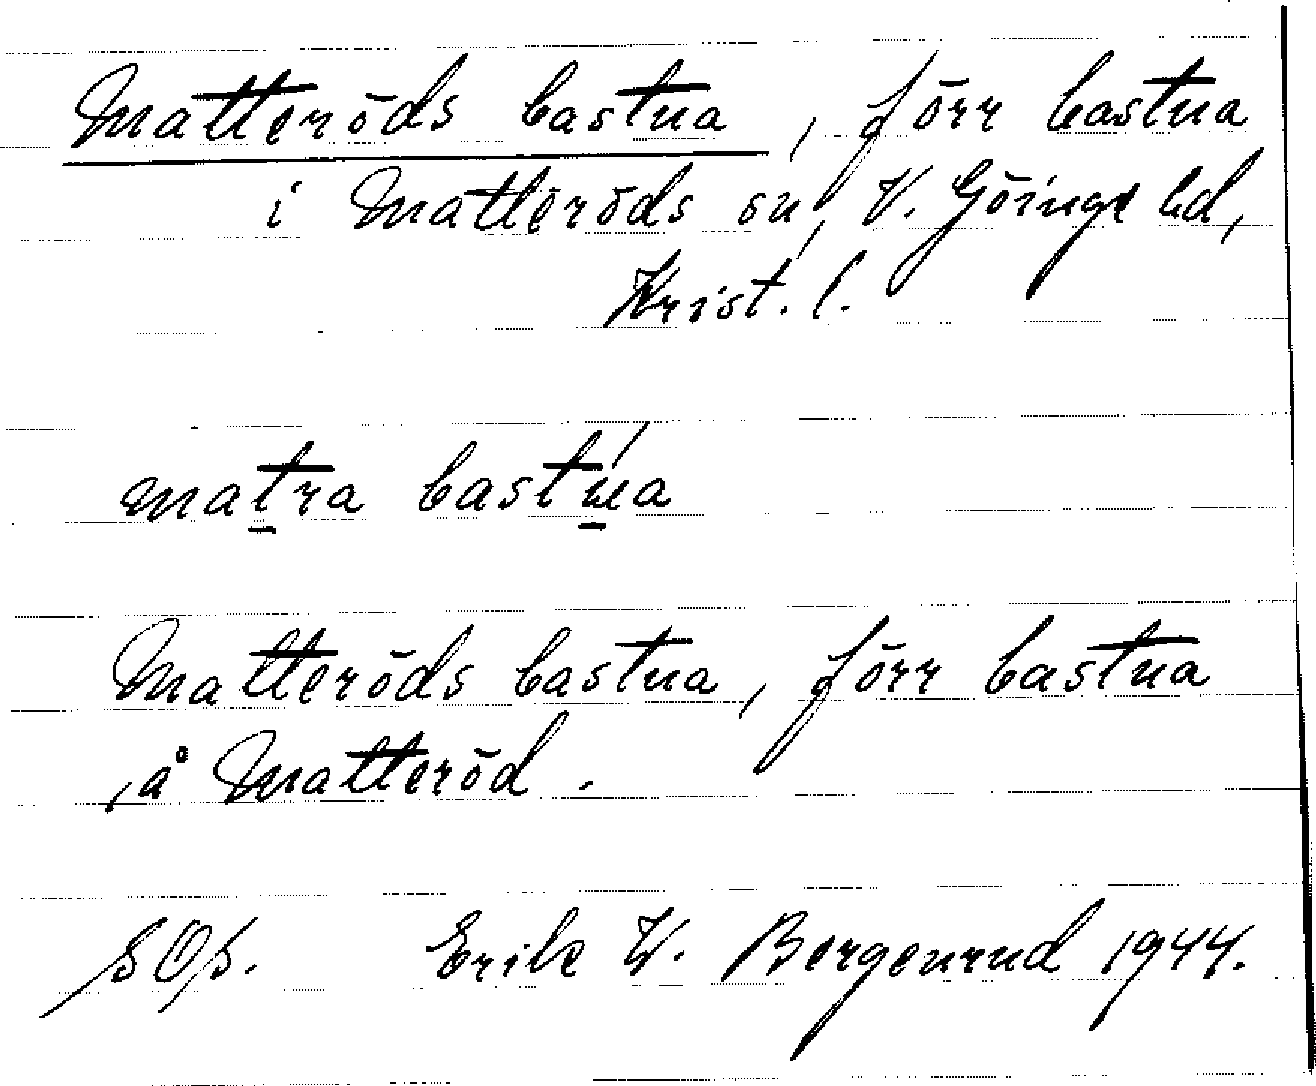 Matteröds bastua, förr bastua
i Matteröds sn, V. Göinge hd,
Krist. l.
matra bastua
Matteröds bastua, förr bastua
å Matteröd.
Erik W. Bergenrud 1944.